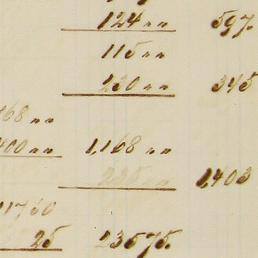 124 " " 597.
115 " "
230 " " 345
168 " "
400 " " 1,168 " "
235 " " 1,403
11750
25 23575.